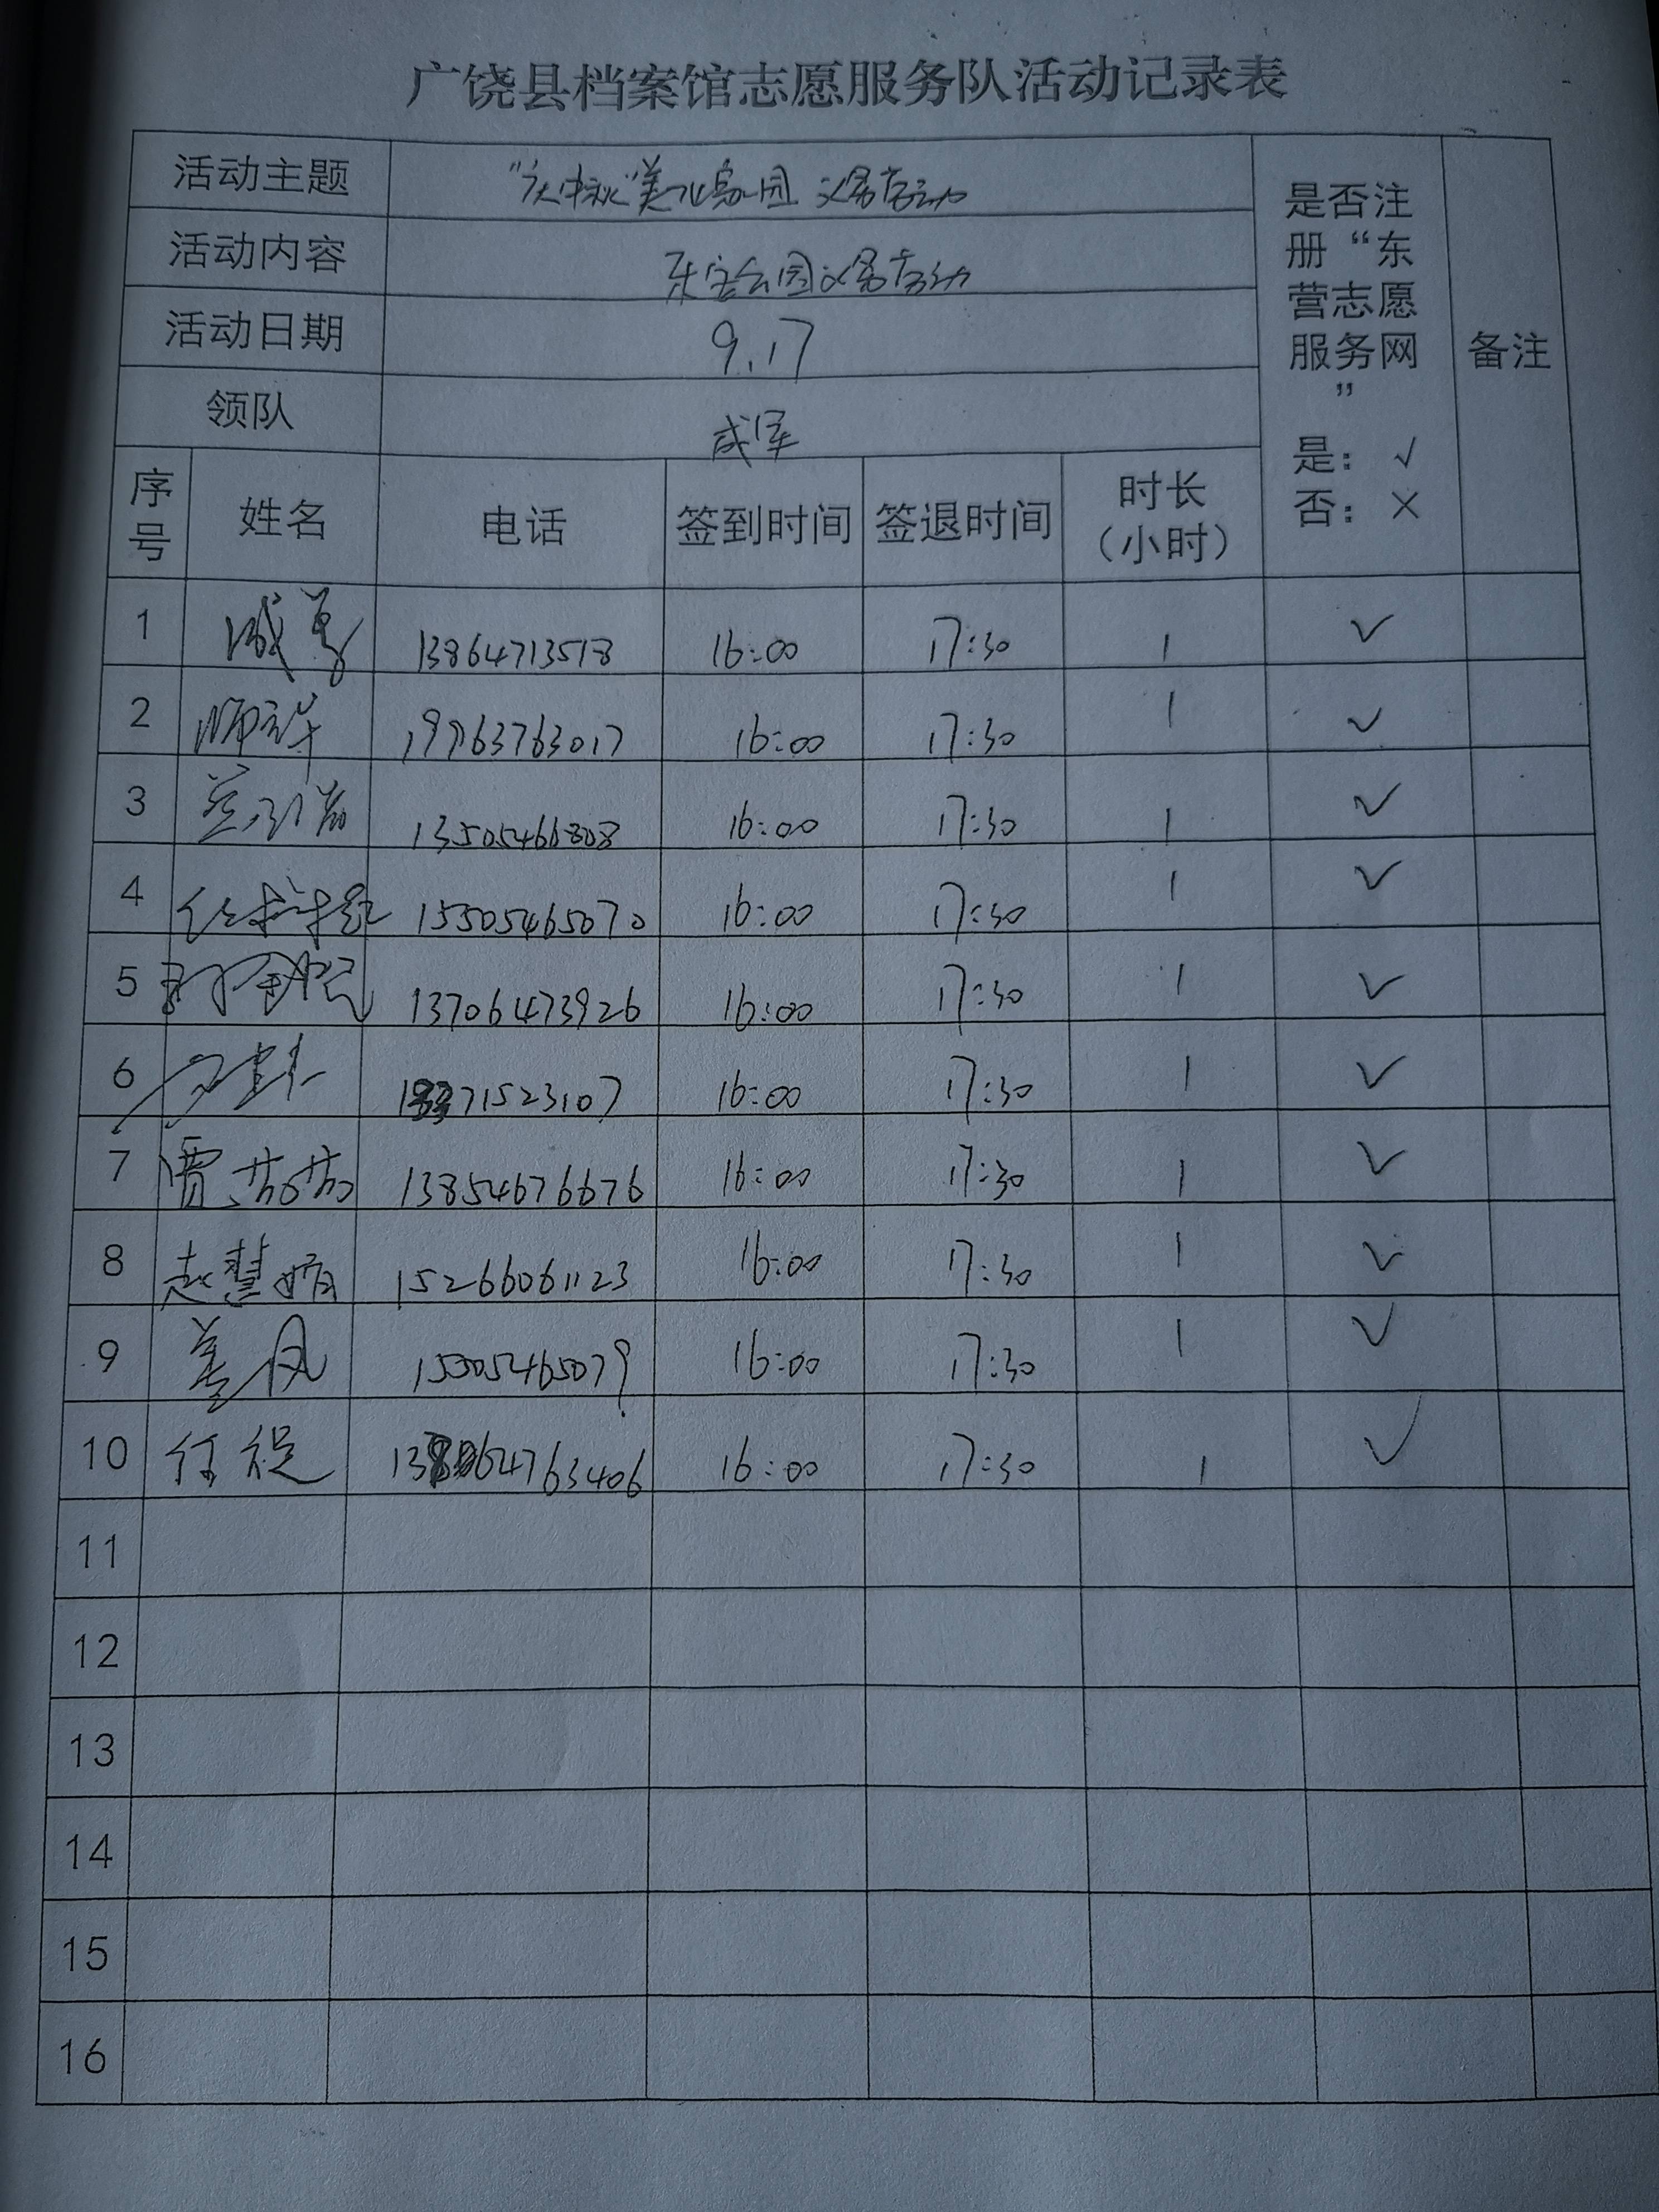 广饶县档案馆志愿服务队活动记录表
活动主题 “庆中秋”美化家园 义务劳动
活动内容 乐安公园义务劳动
活动日期 9.17
领队 成军
是否注
册“东
营志愿
服务网
”
是：√
否：×
备注
序号 姓名 电话 签到时间 签退时间 时长（小时）
1 13864713518 16:00 17:30 1 √
2 19963763017 16:00 17:30 1 √
3 13505466808 16:00 17:30 1 √
4 15505465070 16:00 17:30 1 √
5 13706473926 16:00 17:30 1 √
6 16:00 17:30 1 √
7 贾茹茹 13854676676 16:00 17:30 1 √
8 赵慧娟 15266061123 16:00 17:30 1 √
9 姜凤 16:00 17:30 1 √
10 16:00 17:30 1 √
11
12
13
14
15
16